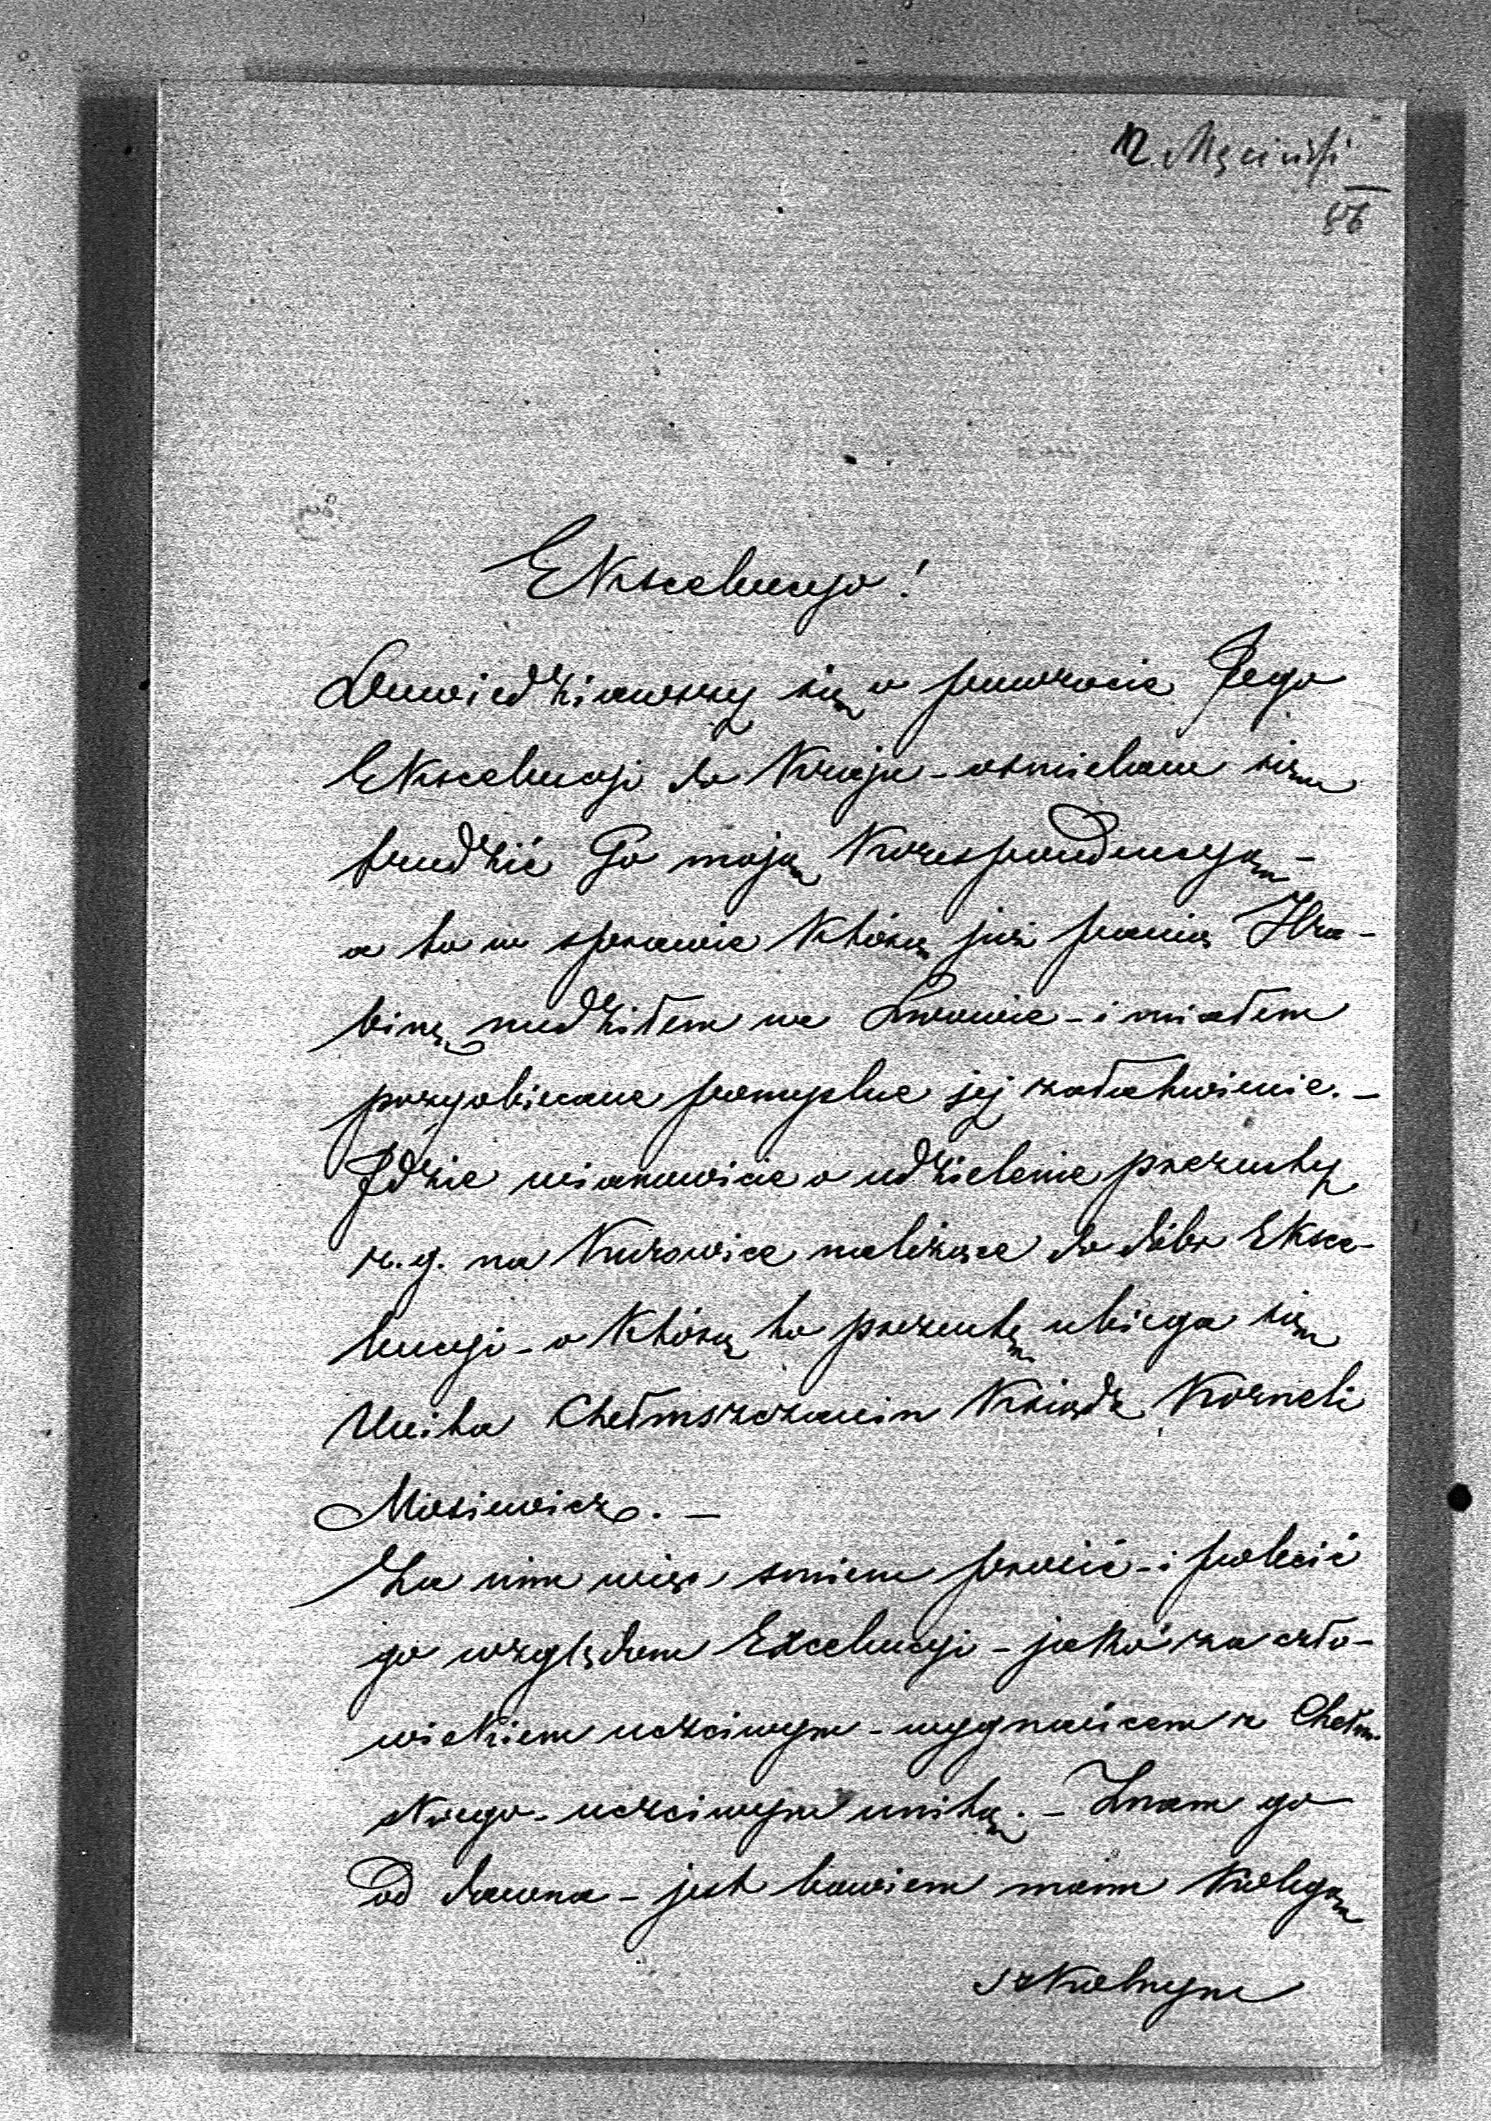 M. Męciński
86
Ekscelencyo!
Dowiedziawszy się o powrocie Jego
Ekscelencyi do Kraju - ośmielam się
trudzić Go moją Korespondencyą -
a to w sprawie którą już panią Hra-
binę nudziłem we Lwowie - i miałem
przyobiecane pomyślne jej załatwienie. -
Idzie mianowicie o udzielenie prezenty
r. g. na Kurowice należące do dóbr Eksce-
lencyi - o którą to prezentę ubiega się
Unita Chełmszczanin Ksiądz Korneli
Mosiewicz. -
Za nim więc śmiem prosić - i polecić
go względom Excelencyi - jako za czło-
wiekiem uczciwym - wygnańcem z Chełm-
skiego - uczciwym unitą. - Znam go
od dawna - jest bowiem moim Kolegą
szkolnym